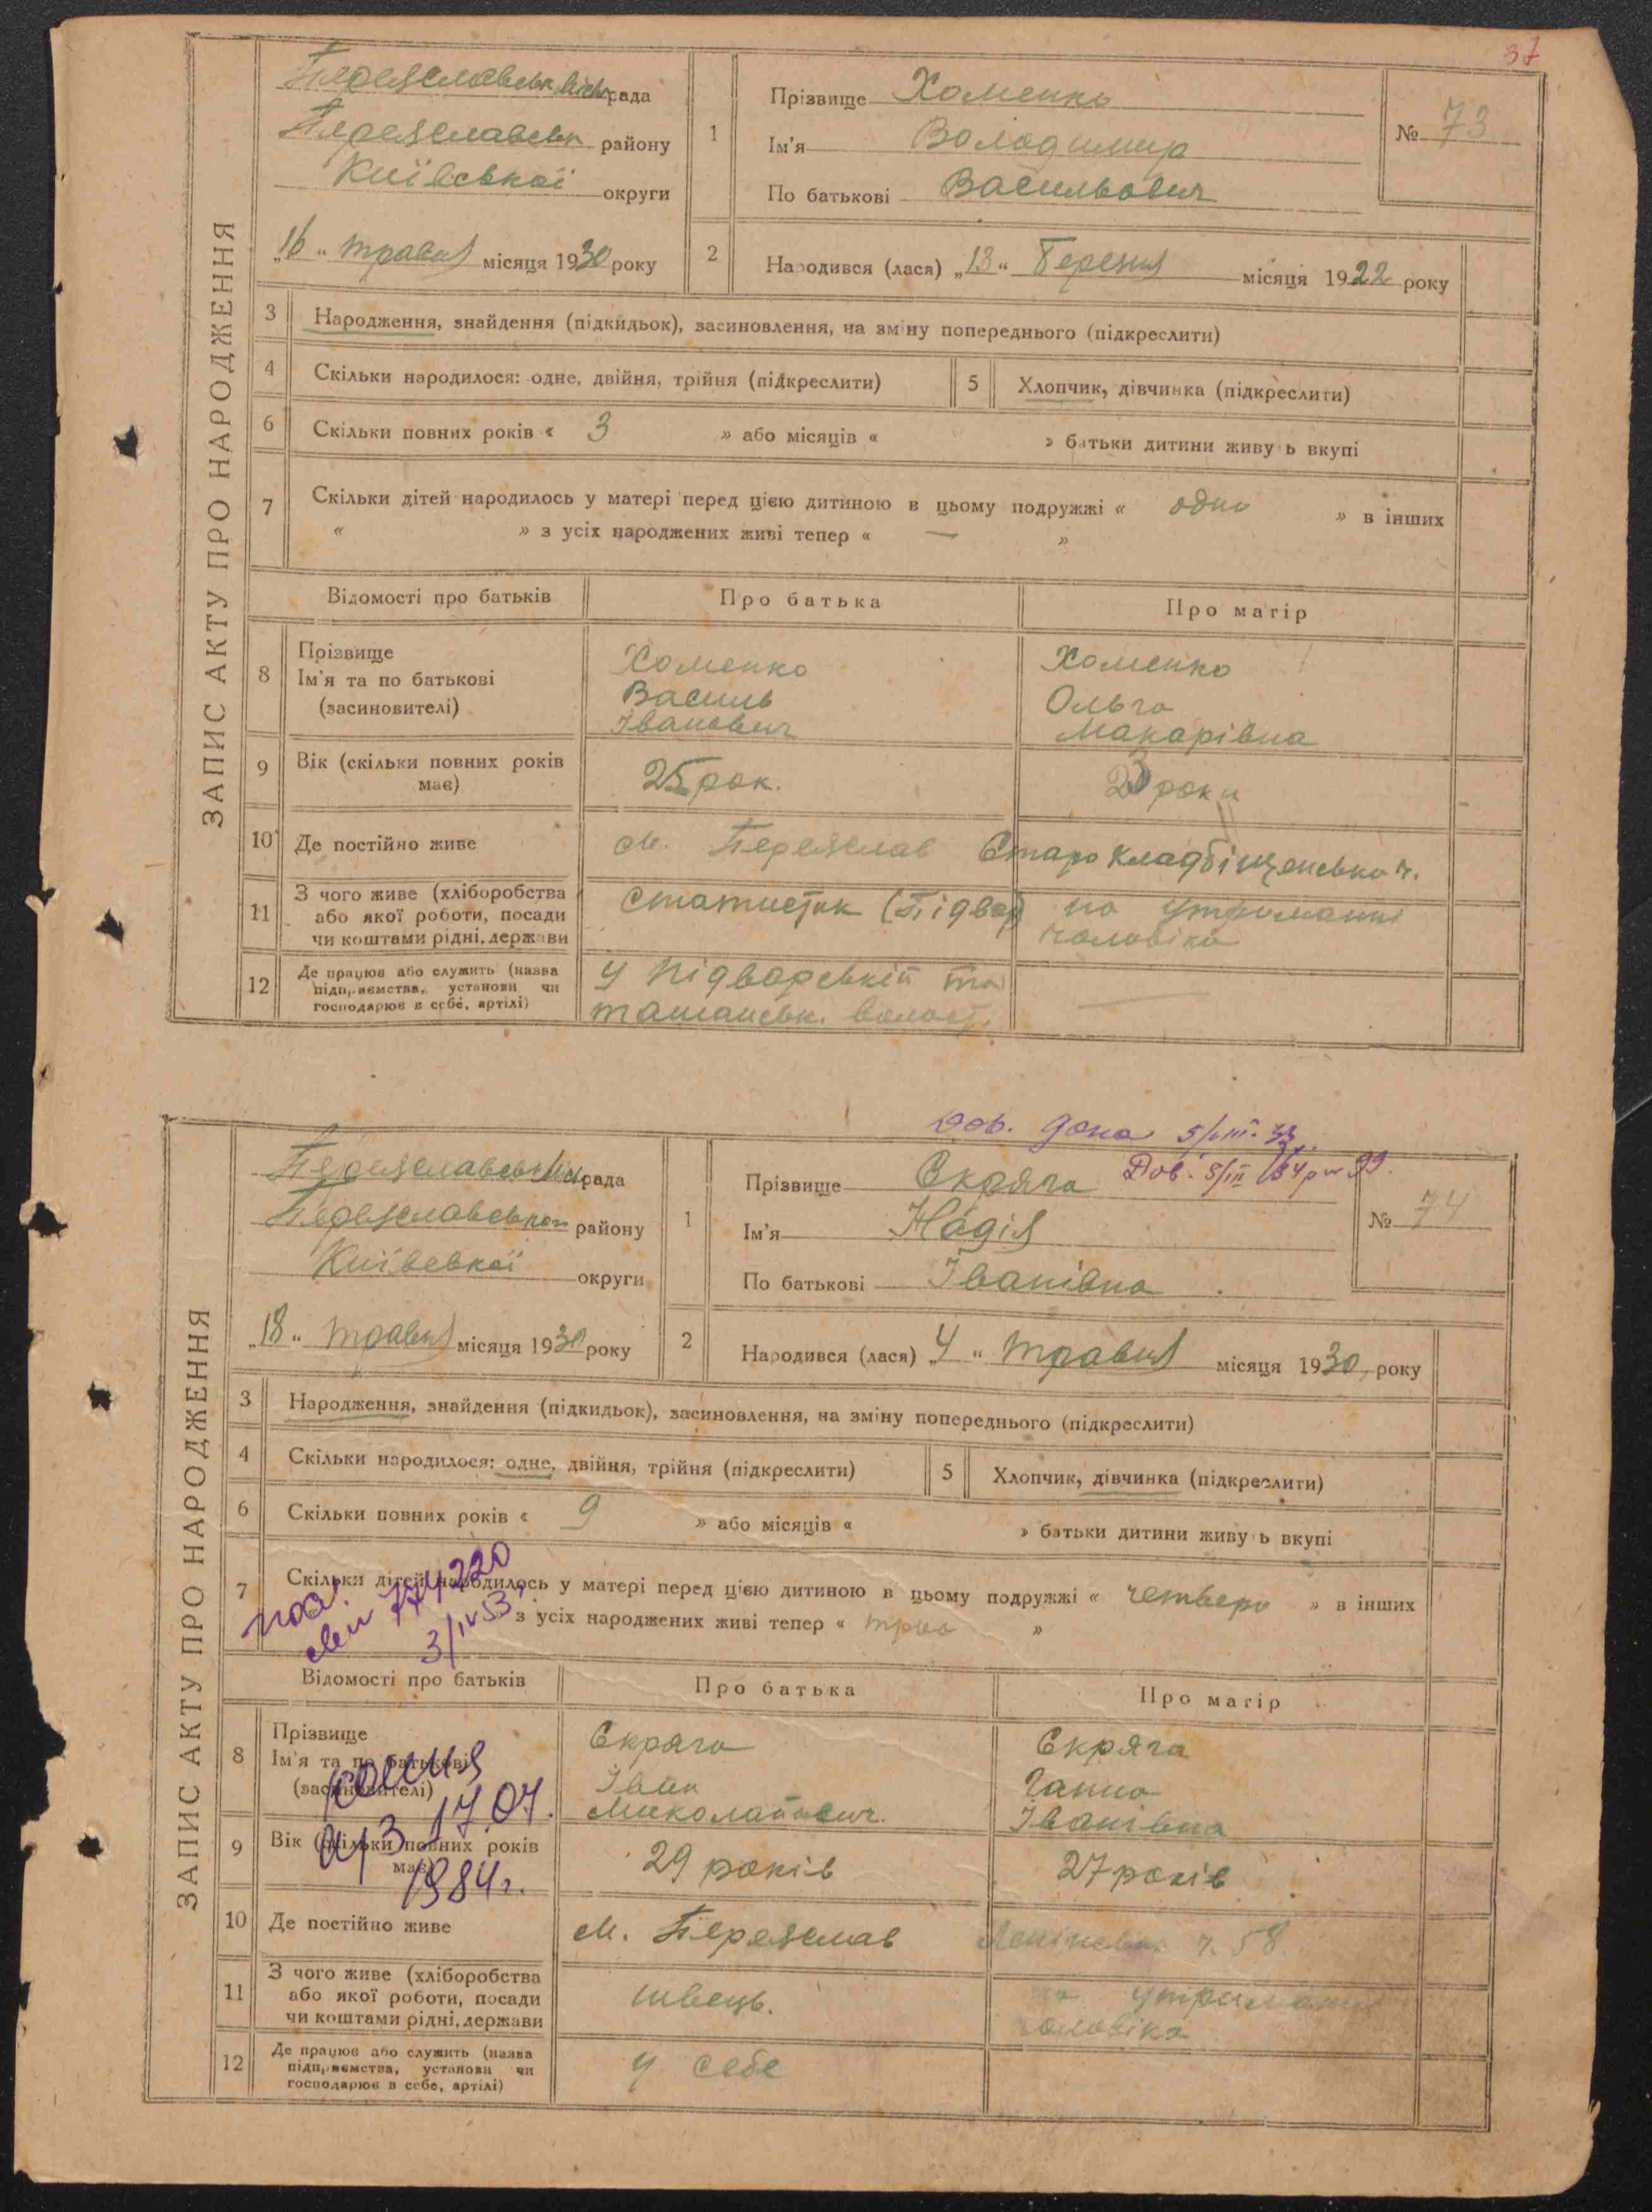 37
ЗАПИС АКТУ ПРО НАРОДЖЕННЯ
Переяславськ міськрада
Переяславськ району
Київської округи
„16“ травня місяця 1930 року
1
Прізвище Хоменко
Ім'я Володимир
По батькові Васильович
№ 73
2
Народився (лася) „13“ Березня місяця 1922 року
3 Народження, знайдення (підкидьок), засиновлення, на зміну попереднього (підкреслити)
4 Скільки народилося: одне, двійня, трійня (підкреслити)
5 Хлопчик, дівчинка (підкреслити)
6 Скільки повних років « 3 » або місяців « » батьки дитини живуть вкупі
7 Скільки дітей народилось у матері перед цією дитиною в цьому подружжі « одно » в інших
« » з усіх народжених живі тепер « — »
Відомості про батьків Про батька Про матір
8 Прізвище Хоменко Хоменко
Ім'я та по батькові Василь Ольга
(засиновителі) Іванович Макарівна
9 Вік (скільки повних років має) 25 рок. 23 роки
10 Де постійно живе м. Переяслав Старо кладбіщенська ч.
11 З чого живе (хліборобства
або якої роботи, посади
чи коштами рідні, держави
Статистик (Підвар)
на утриманні
чоловіка
12 Де працює або служить (назва
підприємства, установи чи
господарює в себе, артілі)
У Підварській та
ташанськ. волост.
—
Дов. дана
ЗАПИС АКТУ ПРО НАРОДЖЕННЯ
Переяславськ міськрада
Переяславськ району
Київської округи
„18“ травня місяця 1930 року
1
Прізвище Скряга Дов.
Ім'я Надія
По батькові Іванівна
№ 74
2
Народився (лася) „4“ травня місяця 1930 року
3 Народження, знайдення (підкидьок), засиновлення, на зміну попереднього (підкреслити)
4 Скільки народилося: одне, двійня, трійня (підкреслити)
5 Хлопчик, дівчинка (підкреслити)
6 Скільки повних років « 9 » або місяців « » батьки дитини живуть вкупі
7 Скільки дітей народилось у матері перед цією дитиною в цьому подружжі « четверо » в інших
з усіх народжених живі тепер « троє »
774220
3/IV 53
Відомості про батьків Про батька Про матір
8 Прізвище Скряга Скряга
Ім'я та по батькові Іван Ганна
(засиновителі) Миколайович. Іванівна
копия
а/з 17.04.
1984г.
9 Вік (скільки повних років має) 29 років 27 років
10 Де постійно живе м. Переяслав Ленінськ. ч. 58
11 З чого живе (хліборобства
або якої роботи, посади
чи коштами рідні, держави
швець.
на утриманні
чоловіка
12 Де працює або служить (назва
підприємства, установи чи
господарює в себе, артілі)
у себе